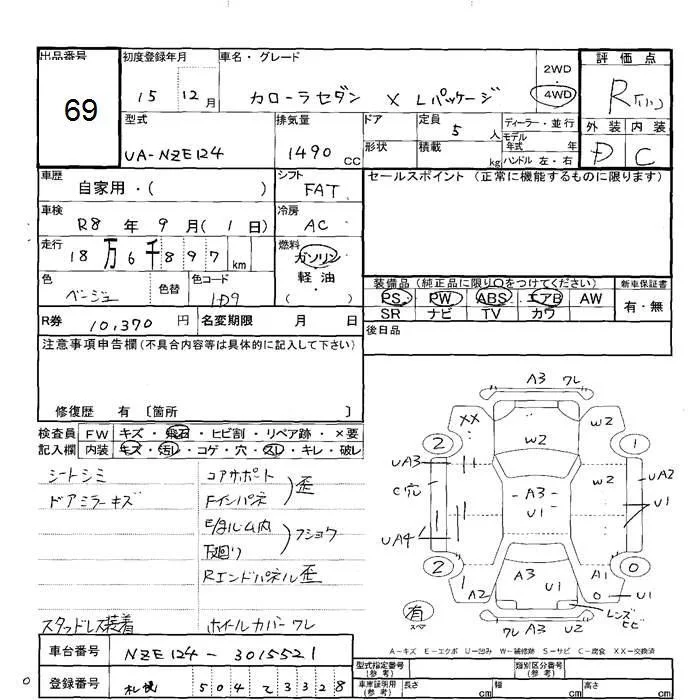 出品番号 初度登録年月 車名・グレード 評価点
69 15 12月 カローラセダン X Lパッケージ 2WD 4WD R
型式 排気量 ドア 定員 5人 ディーラー・並行 外装 内装
UA-NZE124 1490 CC 形状 積載 kg モデル年式 年 D C
ハンドル 左・右
車歴 自家用・( ) シフト FAT セールスポイント (正常に機能するものに限ります)
車検 R8年9月(1日) 冷房 AC
走行 18万6千897km 燃料 ガソリン 軽油 ( )
色 ベージュ 色替 色コード 1D9
装備品 (純正品に限り○をつけてください) 新車保証書
PS PW ABS エアB AW 有・無
SR ナビ TV カワ
R券 10,370円 名変期限 月 日 後日品
注意事項申告欄(不具合内容等は具体的に記入して下さい)
修復歴 有 〔箇所 〕
検査員 FW キズ・飛石・ヒビ割・リペア跡・×要
記入欄 内装 キズ・汚レ・コゲ・穴・スレ・キレ・破レ
シートシミ コアサポート
ドアミラーキズ Fインパネ 歪
E/gルーム内
下廻り フショク
Rエンドパネル歪
スタッドレス装着 ホイールカバーワレ
A3 ワレ
XX W2 W2
2 1
UA3 C穴 A3 U1 W2 UA2 U1
UA4
2 0
A2 A3 U1 A1 0 U1
有 スペア ワレ A3 U2 レンズヒビ
A-キズ E-エクボ U-凹み W-補修跡 S-サビ C-腐食 XX-交換済
車台番号 NZE124-3015521
登録番号 札幌 504 て 3328
型式指定番号(参考) 類別区分番号(参考)
車庫証明用(参考) 長さ cm 幅 cm 高さ cm